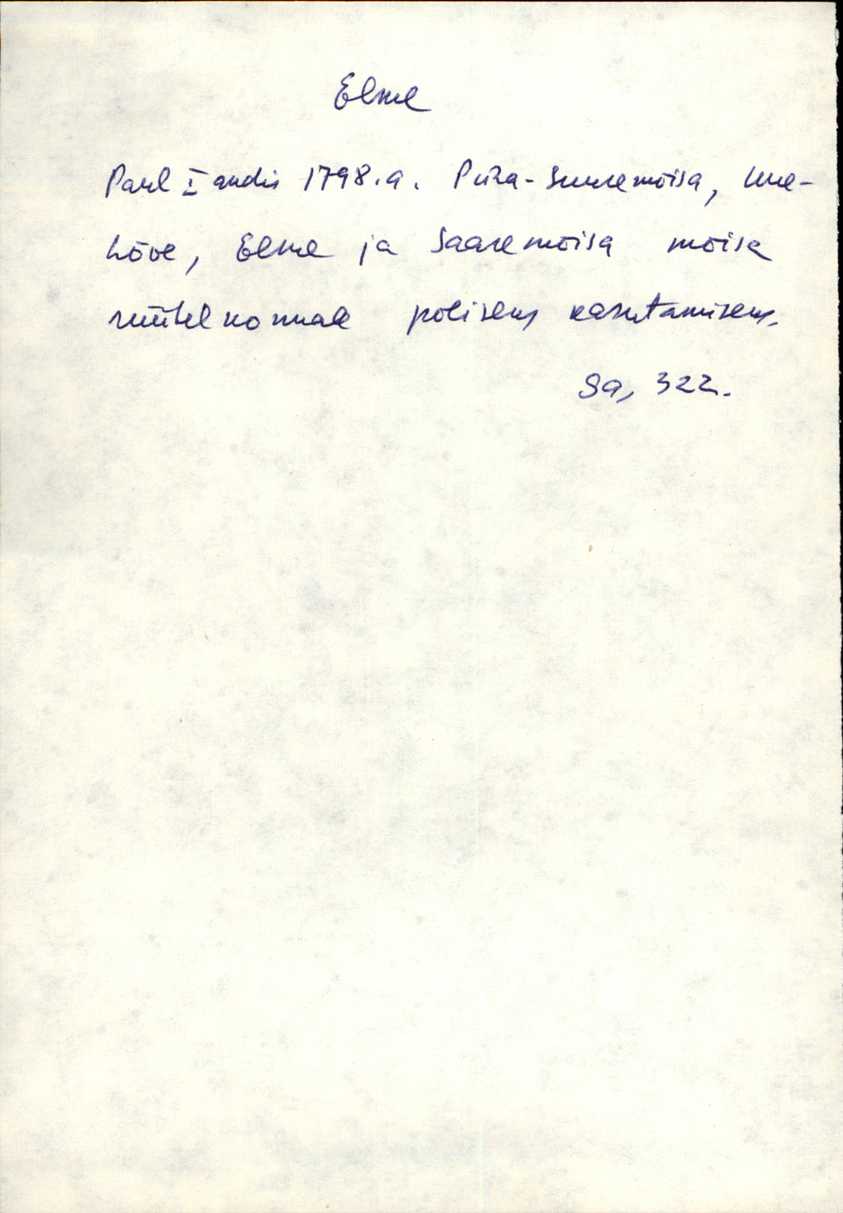 Elme
Paul I andis 1798.a. Piira-Suuremõisa, Uue-
Lõve, Elme ja Saaremõisa mõisa
rüütelkonnale põliseks kasutamiseks.
Sa, 322.